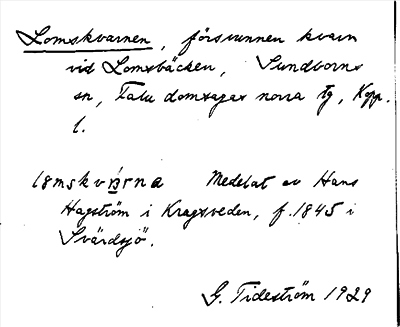 Lomskvarnen, försvunnen kvarn
vid Lomsbäcken, Sundborns
sn, Falu domsagas norra tg, Kopp.
l.
Medelat av Hans
Hagström i Kragsveden, f. 1845 i
Svärdsjö.
G. Tideström 1929